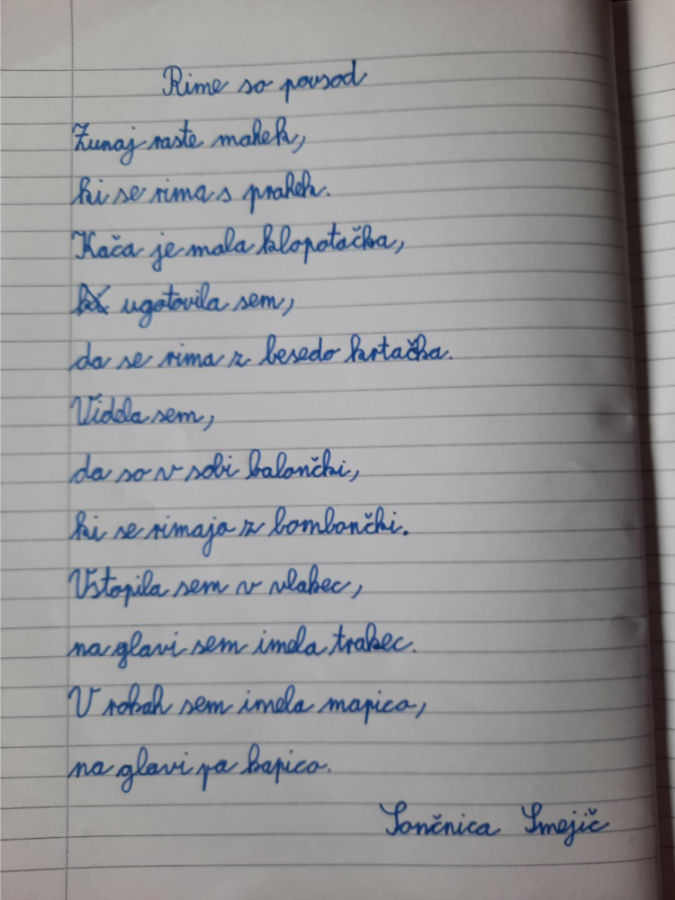 Rime so povsod
Zunaj raste mahek,
ki se rima s prahek.
Kača je mala klopotačka,
ugotovila sem,
da se rima z besedo krtačka.
Videla sem,
da so v sobi balončki,
ki se rimajo z bombončki.
Vstopila sem v vlakec,
na glavi sem imela trakec.
V rokah sem imela mapico,
na glavi pa kapico.
Sončnica Smejič